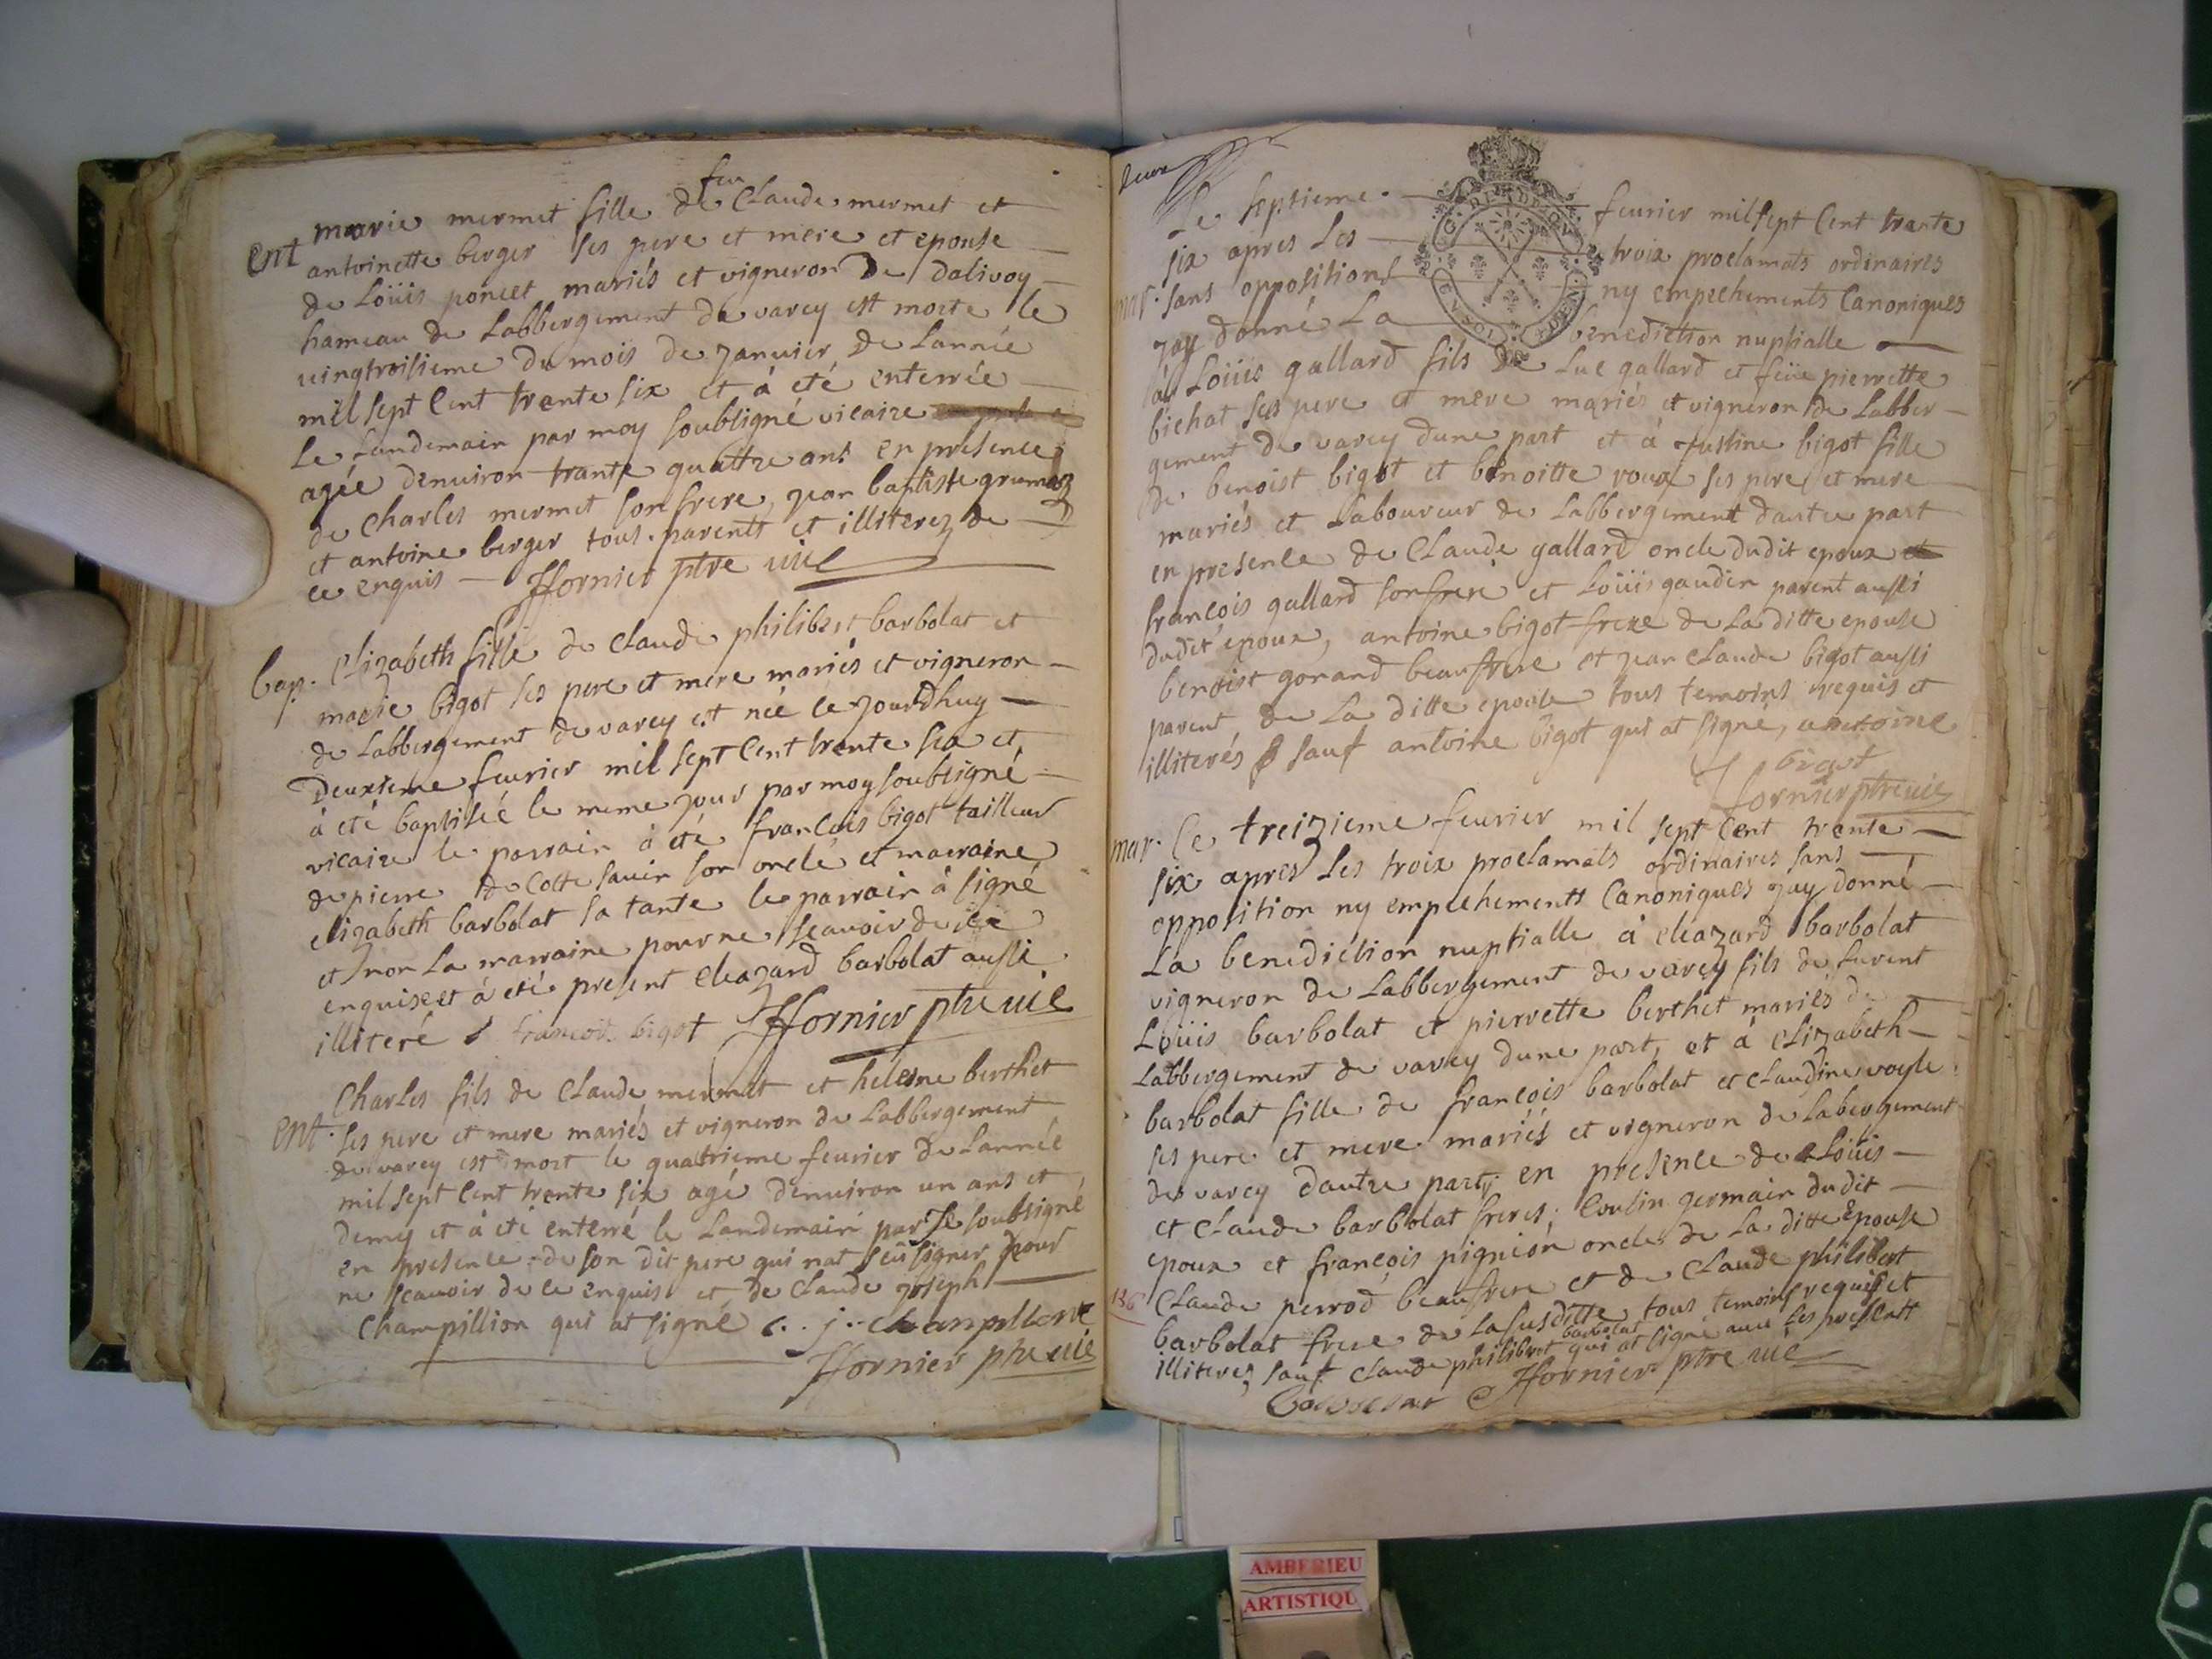 feu
marie mermet fille de Claude mermet et
ent antoinette berger ses pere et mere et epouse
de Loüis poncet mariés et vigneron De dalivoy
hameau de Labbergement de varey est morte le
vingtroisieme du mois de Janvier de Lannée
mil sept Cent trente six et à eté enterrée
Le Landemain par moy soubsigné vicaire
agée denviron trante quattre ans en presence
de Charles mermet son frere, Jean baptiste grumaz
et antoine berger tous parents et illiterez de
ce enquis Ffornier ptre vic
bap. Elizabeth fille de Claude philibert barbolat et
marie bigot ses pere et mere mariés et vigneron
de Labbergement de varey est née le jourdhuy
Deuxieme feurier mil sept Cent trente six et
à eté baptisée le meme jour par moy soubsigné
vicaire le parrain à eté francois bigot tailleur
de pierre de Cotte savin son oncle et marraine
elizabeth barbolat sa tante le parrain à signé
et non La marraine pour ne sçauoir de ce
enquise et à eté present eleazard barbolat aussi
illiteré francois bigot Ffornier ptre vic
Charles fils de Claude mermet et héleine berthet
ent. ses pere et mere mariés et vigneron de Labbergement
de varey est mort le quatrieme feurier de Lannée
mil sept Cent trente six agé denuiron un ans et
demy et à eté enterré le Landemain par Le soubsigné
en presence de son dit pere qui nat seü signer pour
ne sçauoir de ce enquis et de Claude joseph
Champillion qui at signé c. j. champillont
Ffornier ptre vic
deux
Le septieme feurier mil sept Cent trante
six apres Les troix proclamats ordinaires
mar. sans oppositions ny empechements Canoniques
jay donné La benediction nuptialle
à Loüis gallard fils de Luc gallard et feüe pierrette
bichat ses pere et mere mariés et vigneron de Labber-
gement de varey dune part et à Justine bigot fille
de benoist bigot et benoitte roux ses pere et mere
mariés et Laboureur de Labbergement dautre part
en presence de Claude gallard oncle dudit epoux
francois gallard son frere et Loüis gaudin parent aussi
dudit epoux, antoine bigot frere de La ditte epouse
benoist gonand beaufrere et jean Claude bigot aussi
parent de La ditte epouse tous temoins requis et
illiterés sauf antoine bigot qui at signé, antoine
bigot
Ffornier ptre vic
mar. Le treizieme feurier mil sept Cent trente
six apres Les troix proclamats ordinaires sans
opposition ny empechements Canoniques jay donné
La benediction nuptialle à eleazard barbolat
vigneron de Labbergement de varey fils de furent
Loüis barbolat et pierrette berthet mariés de
Labbergement de varey dune part, et à elizabeth
barbolat fille de francois barbolat et Claudine voysle
ses pere et mere mariés et vigneron de Labergement
de varey dautre part, en presence de Loüis
et Claude barbolat freres; Cousin germain dudit
epoux et francois pignion oncle de La ditte Epouse
136 Claude perrod beaufrere et de Claude philibert
barbolat frere de La susditte tous temoins requis et
barbolat
illiterez sauf Claude philibert qui at signé auec Les presents
barbolat Ffornier ptre vic
AMBERIEU
ARTISTIQU